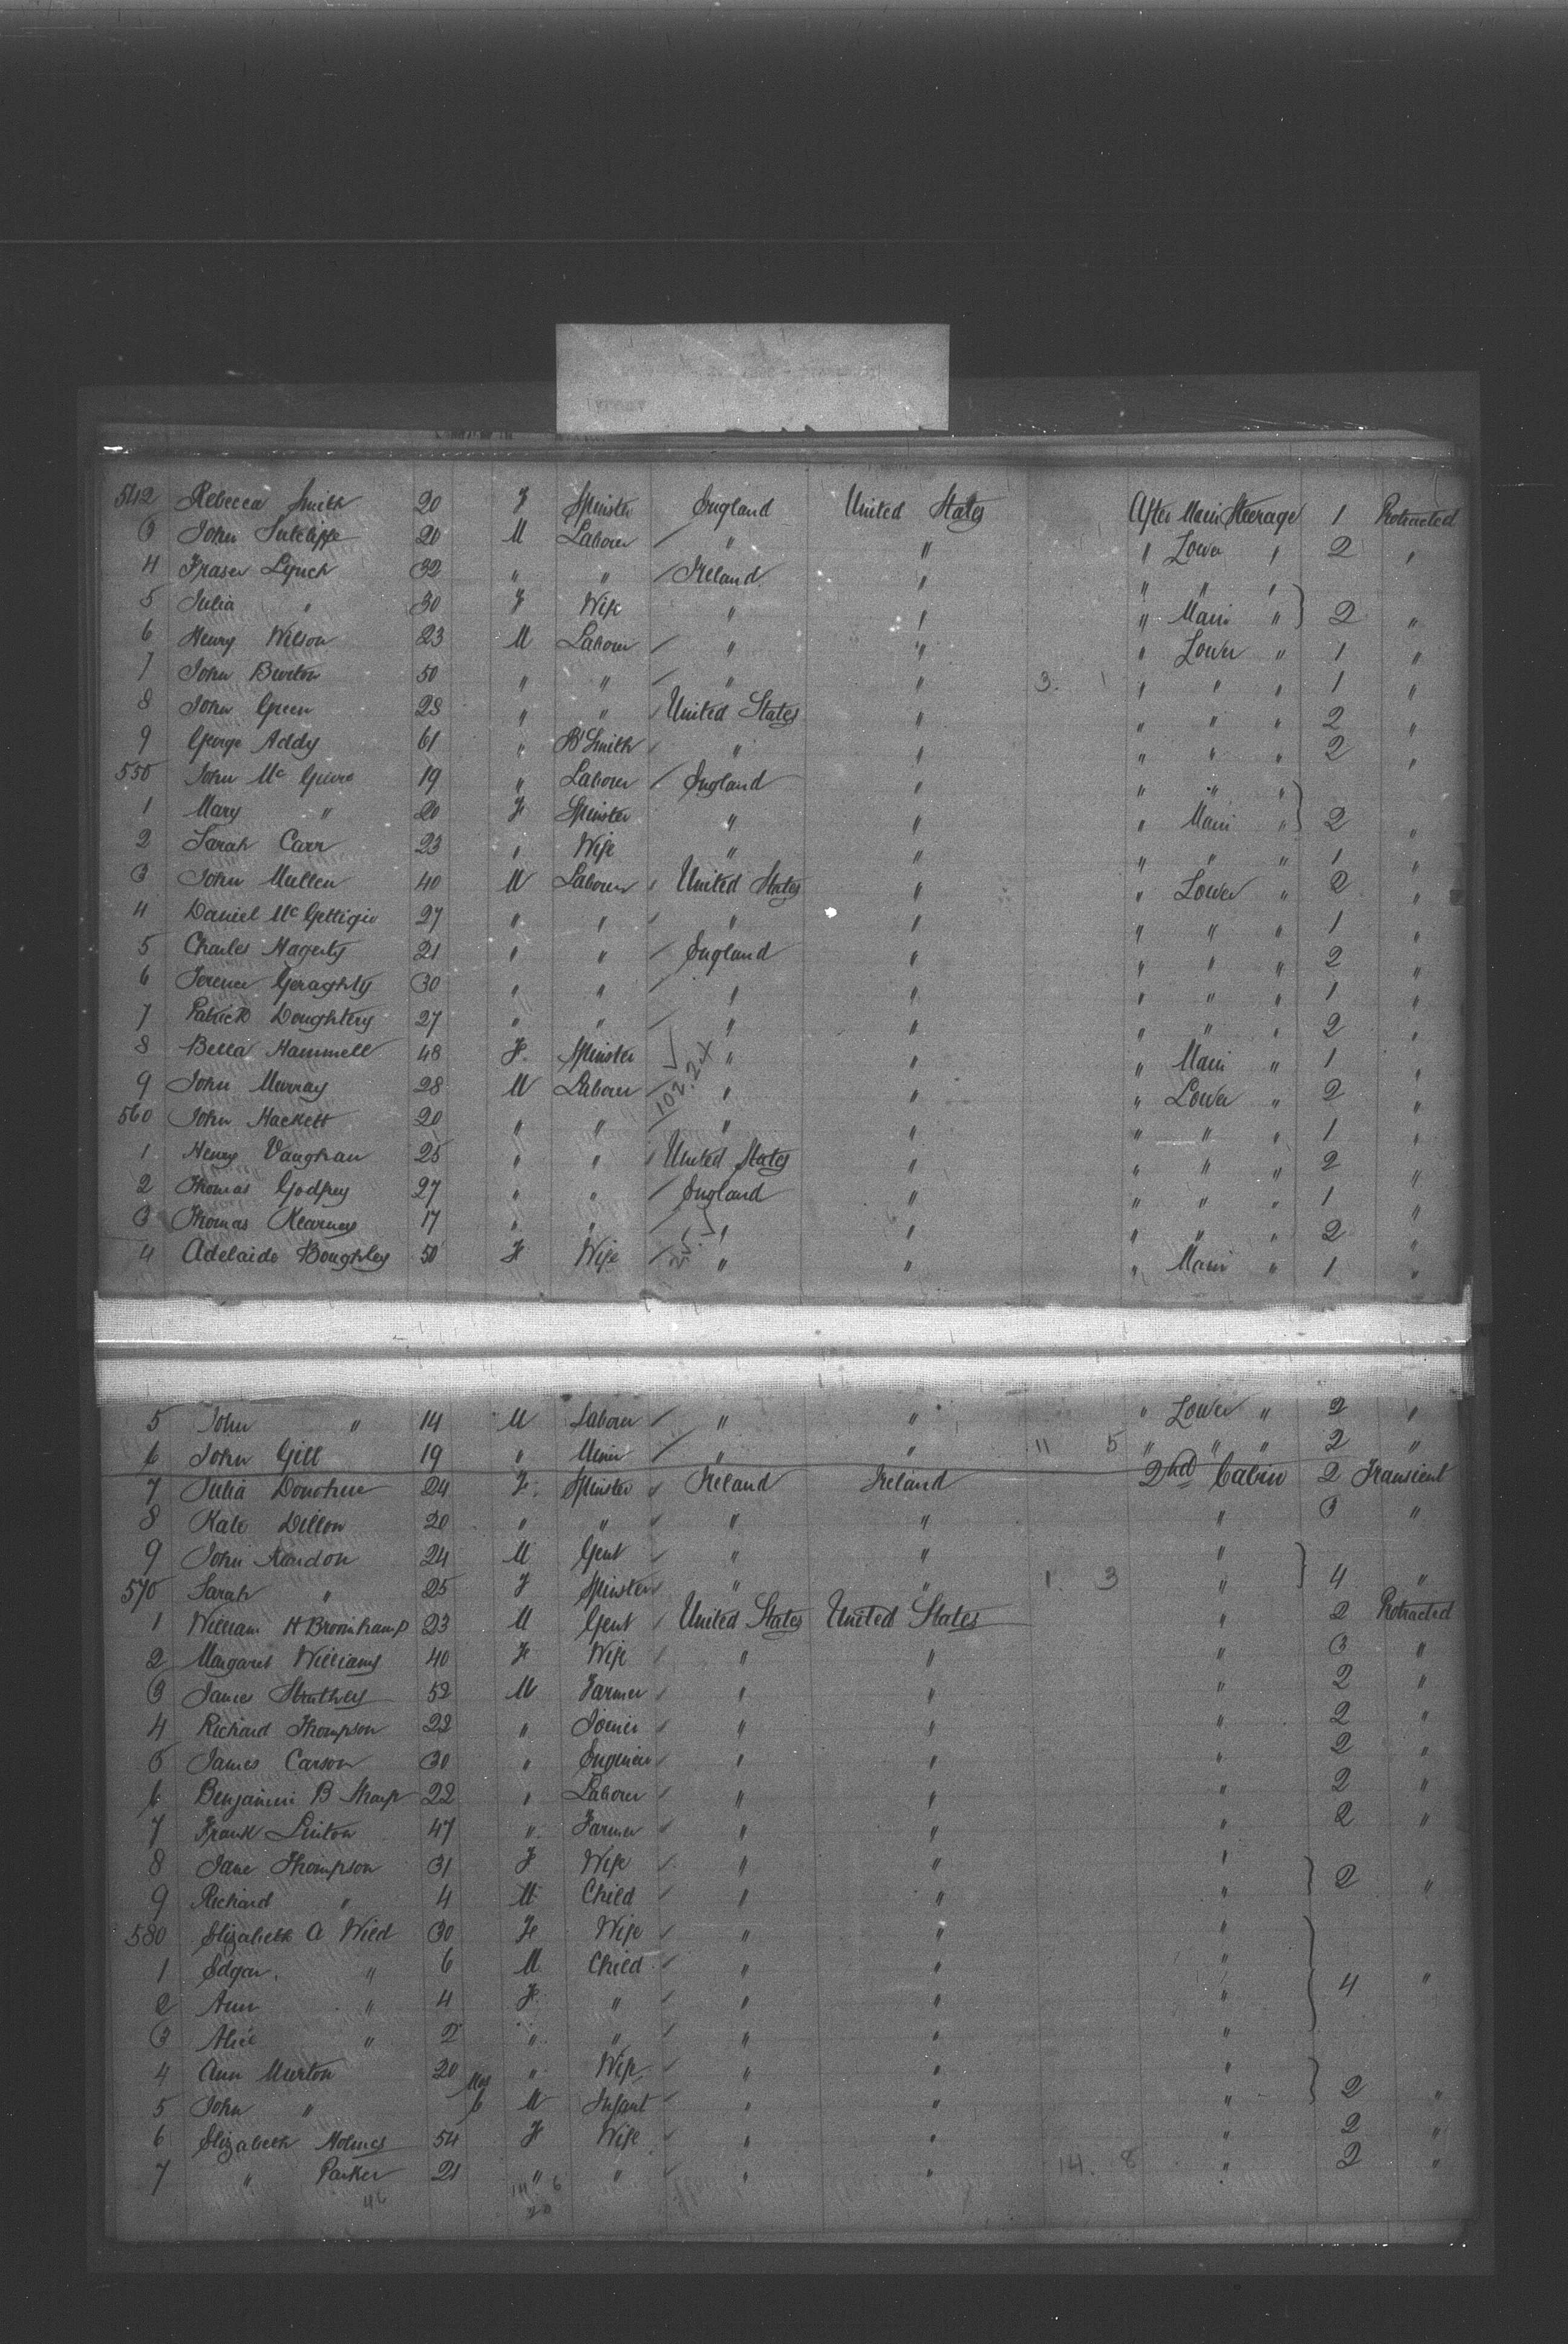 542 Rebecca Smith 20 F Spinster England United States After Main Steerage 1 Protracted
3 John Sutcliffe 20 M Laborer / " " " Lower " 2 "
4 Fraser Lynch 32 " " / Ireland " " " "
5 Julia " 30 F Wife " " " Main " } 2 "
6 Henry Wilson 23 M Laborer / " " " Lower " 1 "
7 John Burton 50 " " / " " 3. 1 " " " 1 "
8 John Green 28 " " / United States " " " " 2 "
9 George Addy 61 " B'Smith / " " " " " 2 "
550 John Mc Guire 19 " Laborer / England " " " "
1 Mary " 20 F Spinster " " " Main " } 2 "
2 Sarah Carr 23 " Wife " " " " " 1 "
3 John Mullen 40 M Laborer / United States " " Lower " 2 "
4 Daniel Mc Gettigin 27 " " / " " " " " 1 "
5 Charles Hagerty 21 " " / England " " " " 2 "
6 Terence Geraghty 30 " " / " " " " " 1 "
7 Patrick Doughtery 27 " " / " " " " " 2 "
8 Bella Hammell 48 F Spinster " " " Main " 1 "
9 John Murray 28 M Laborer / " " " Lower " 2 "
560 John Hackett 20 " " / " " " " " 1 "
1 Henry Vaughan 25 " " / United States " " " " 2 "
2 Thomas Godfrey 27 " " / England " " " " 1 "
3 Thomas Kearney 17 " " / " " " " " 2 "
4 Adelaide Boughley 50 F Wife / " " " Main " 1 "
5 John " 14 M Laborer / " " " Lower " 2 "
6 John Gill 19 " / " " 11 5 " " " 2 "
7 Julia Donohue 24 F. Spinster / Ireland Ireland 2nd Cabin 2 Transient
8 Kate Dillon 20 " " / " " " 3 "
9 John 24 M Gent / " " "
570 Sarah " 25 F Spinster / " " 1. 3 " } 4 "
1 William H 23 M Gent / United States United States " 2 Protracted
2 Margaret Williams 40 F Wife / " " " 3 "
3 James Struthers 52 M Farmer / " " " 2 "
4 Richard Thompson 22 " Joiner / " " " 2 "
5 James Carson 30 " Engineer / " " " 2 "
6 Benjamin B Sharp 22 " Laborer / " " " 2 "
7 Frank Linton 47 " Farmer / " " " 2 "
8 Jane Thompson 31 F Wife / " " "
9 Richard " 4 M Child / " " " } 2 "
580 Elizabeth A Wild 30 F Wife / " " "
1 Edgar " 6 M Child / " " "
2 Ann " 4 F " / " " " } 4 "
3 Alice " 2 " " / " " "
4 Ann Murton 20 " Wife / " " "
5 John " Mos 6 M Infant / " " " } 2 "
6 Elizabeth Holmes 54 F Wife / " " " 2 "
7 " Parker 21 " " / " " 14. 8 " 2 "